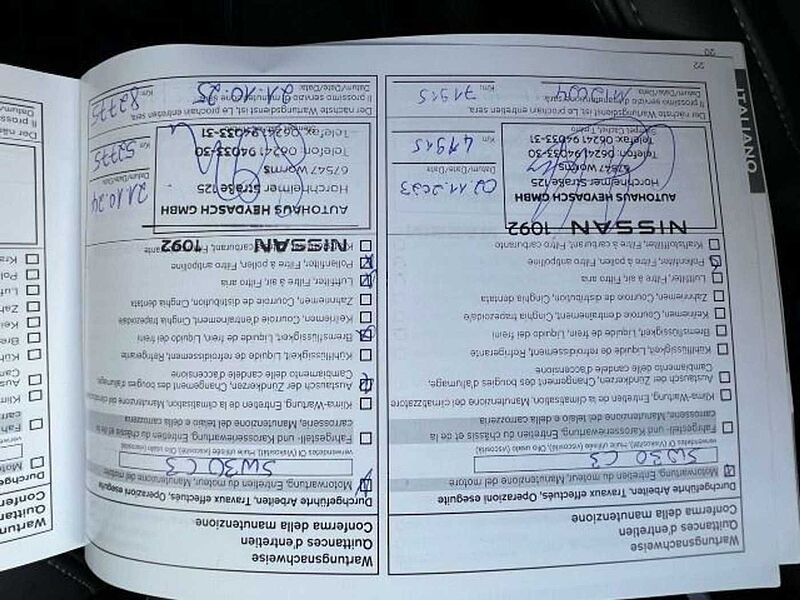 Wartungsnachweise
Quittances d'entretien
Conferma della manutenzione
Durchgeführte Arbeiten, Travaux effectués, Operazioni eseguite
Motorwartung, Entretien du moteur, Manutenzione del motore
5W30 C3
verwendetes Öl (Viskosität), Huile utilisée (viscosité), Olio usato (viscosità)
Fahrgestell- und Karosseriewartung, Entretien du châssis et de la
carrosserie, Manutenzione del telaio e della carrozzeria
Klima-Wartung, Entretien de la climatisation, Manutenzione del climatizzatore
Austausch der Zündkerzen, Changement des bougies d'allumage,
Cambiamento delle candele d'accensione
Kühlflüssigkeit, Liquide de refroidissement, Refrigerante
Bremsflüssigkeit, Liquide de frein, Liquido dei freni
Keilriemen, Courroie d'entraînement, Cinghia trapezoidale
Zahnriemen, Courroie de distribution, Cinghia dentata
Luftfilter, Filtre à air, Filtro aria
Pollenfilter, Filtre à pollen, Filtro antipolline
Kraftstofffilter, Filtre à carburant, Filtro carburante
NISSAN 1092
AUTOHAUS HEYDASCH GMBH
Horchheimer Straße 125
67547 Worms
Telefon: 06241 94033-30
Telefax: 06241 94033-31
02.11.2023
Datum/Date/Data
41915
Km
Der nächste Wartungsdienst ist, Le prochain entretien sera,
Il prossimo servizio manutenzione sarà
11.2024
Datum/Date/Data
71915
Km:
22
ITALIANO
Wartungsnachweise
Quittances d'entretien
Conferma della manutenzione
Durchgeführte Arbeiten, Travaux effectués, Operazioni eseguite
Motorwartung, Entretien du moteur, Manutenzione del motore
5W30 C3
verwendetes Öl (Viskosität), Huile utilisée (viscosité), Olio usato (viscosità)
Fahrgestell- und Karosseriewartung, Entretien du châssis et de la
carrosserie, Manutenzione del telaio e della carrozzeria
Klima-Wartung, Entretien de la climatisation, Manutenzione del
Austausch der Zündkerzen, Changement des bougies d'allumage,
Cambiamento delle candele d'accensione
Kühlflüssigkeit, Liquide de refroidissement, Refrigerante
Bremsflüssigkeit, Liquide de frein, Liquido dei freni
Keilriemen, Courroie d'entraînement, Cinghia trapezoidale
Zahnriemen, Courroie de distribution, Cinghia dentata
Luftfilter, Filtre à air, Filtro aria
Pollenfilter, Filtre à pollen, Filtro antipolline
Filtre à carburant, Filtro carburante
NISSAN 1092
AUTOHAUS HEYDASCH GMBH
Horchheimer Straße 125
67547 Worms
Telefon: 06241 94033-30
Telefax: 06241 94033-31
21.10.24
Datum/Date/Data
52775
Km
Der nächste Wartungsdienst ist, Le prochain entretien sera,
Il prossimo servizio di manutenzione
21.10.25
Datum/Date/Data
82775
Km:
Wartun
Quittan
Confer
Durchge
Moto
verwend
Fah
carr
Klim
Aus
Can
Küh
Bre
Kei
Zah
Luf
Pol
Kra
Datum/
Der näc
Il pross
Datum/
20